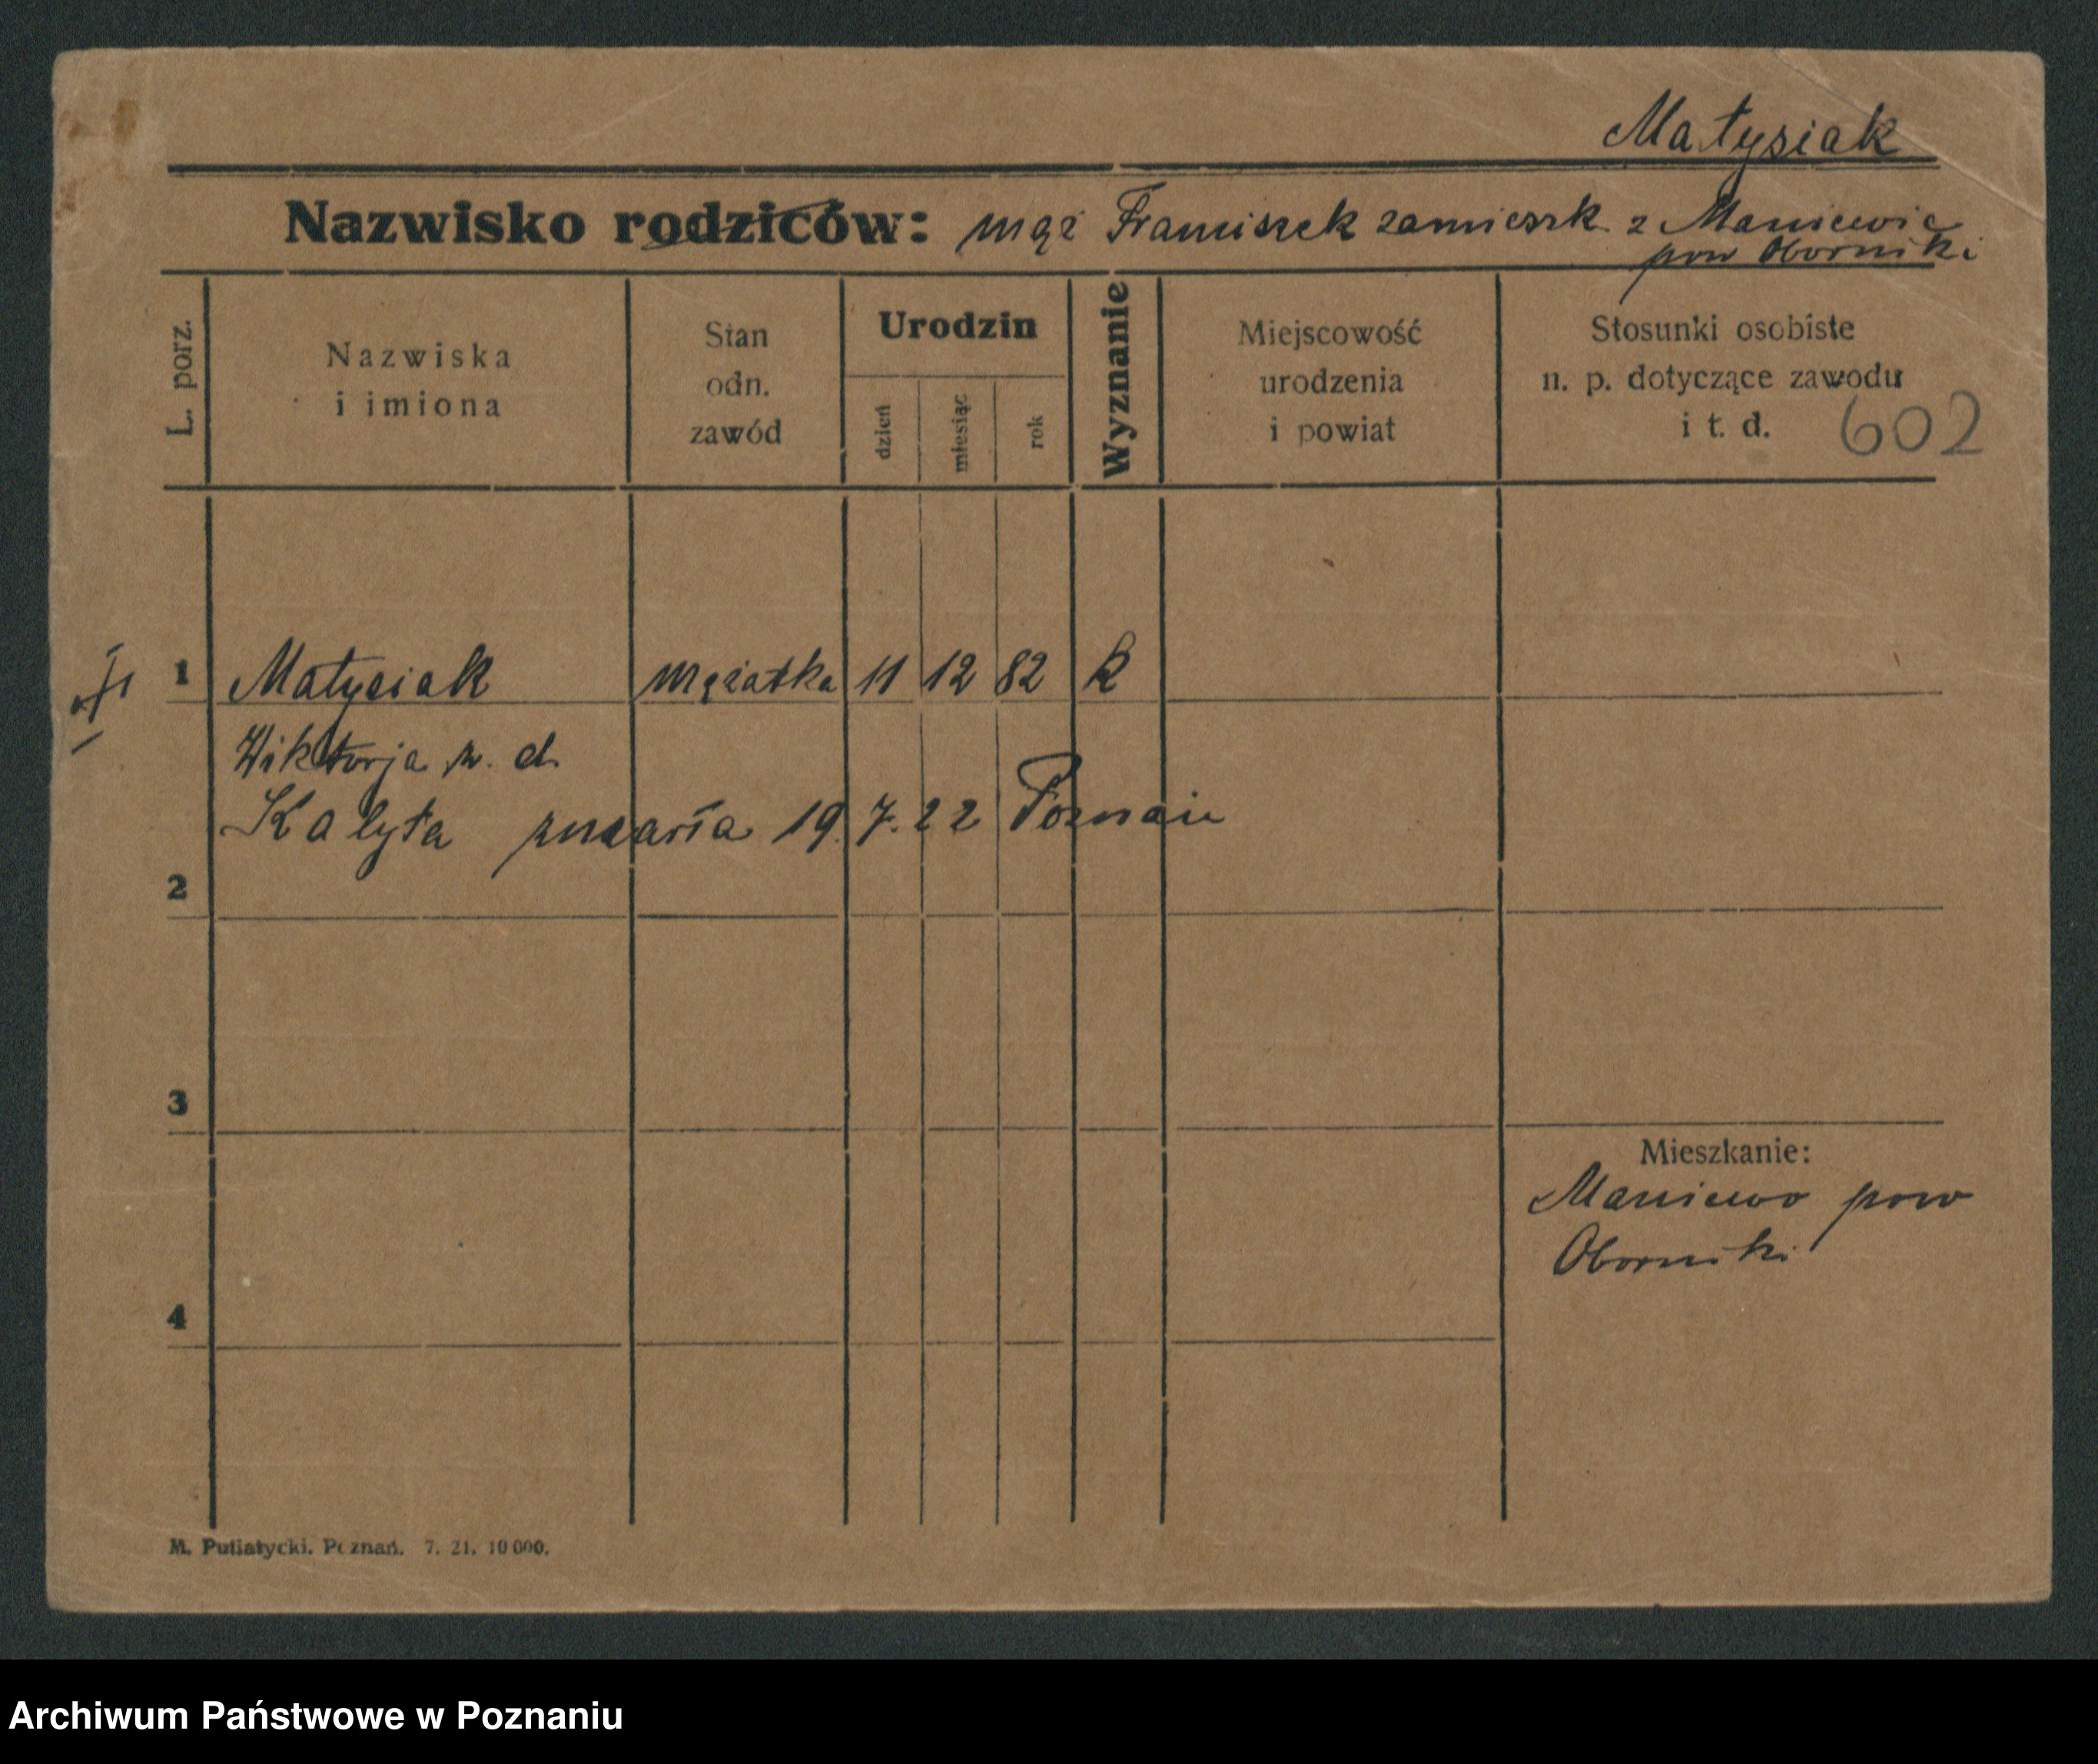 Matysiak
Nazwisko rodziców: mąż Franciszek zamieszk. z Maniewic
pow Oborniki
L. porz.
Nazwiska
i imiona
Stan
odn.
zawód
Urodzin
dzień
miesiąc
rok
Wyznanie
Miejscowość
urodzenia
i powiat
Stosunki osobiste
n. p. dotyczące zawodu
i t. d.
602
1 Matysiak mężatka 11 12 82 k
Wiktorja z. d.
Kalyta zmarła 19. 7. 22 Poznań
2
3
Mieszkanie:
Maniewo pow
Oborniki
4
M. Putiatycki. Poznań. 7. 21. 10 000.
Archiwum Państwowe w Poznaniu